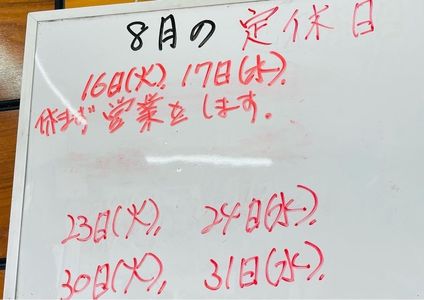 8月の定休日
16日(火)、17日(水)、
休まず営業をします。
23日(火)、 24日(水)、
30日(火)、 31日(水)、